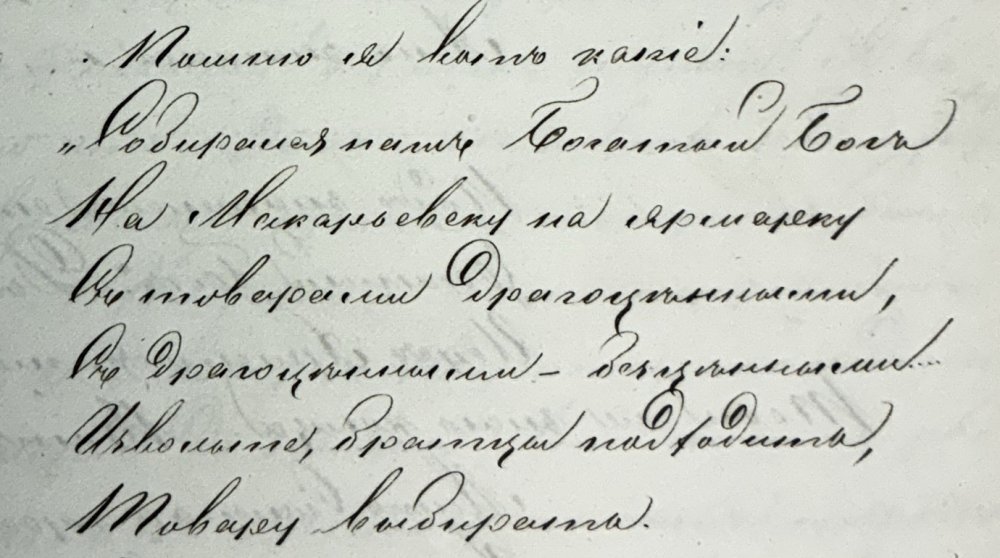 Помню я вотъ какіе:
„Собирался нашъ Богатый Богъ
На Макарьевску на ярмарку
Съ товарами драгоцѣнными,
Съ драгоцѣнными – безцѣнными....
Извольте, братцы подходить,
Товару выбирать.